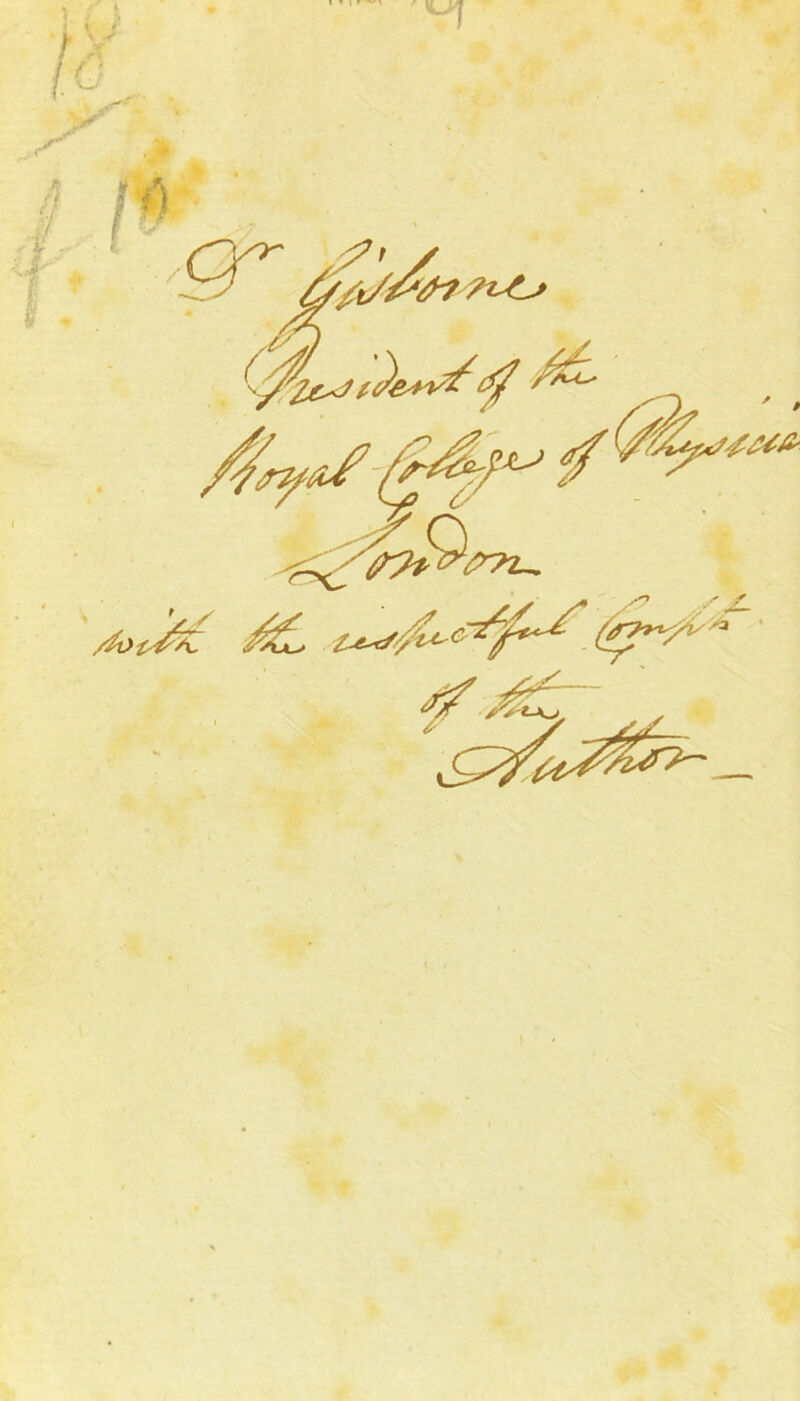 18
f 10
Dr Gisborne
President of the
Royal College of Physicia
London
with the respectful Complts
of the
Author